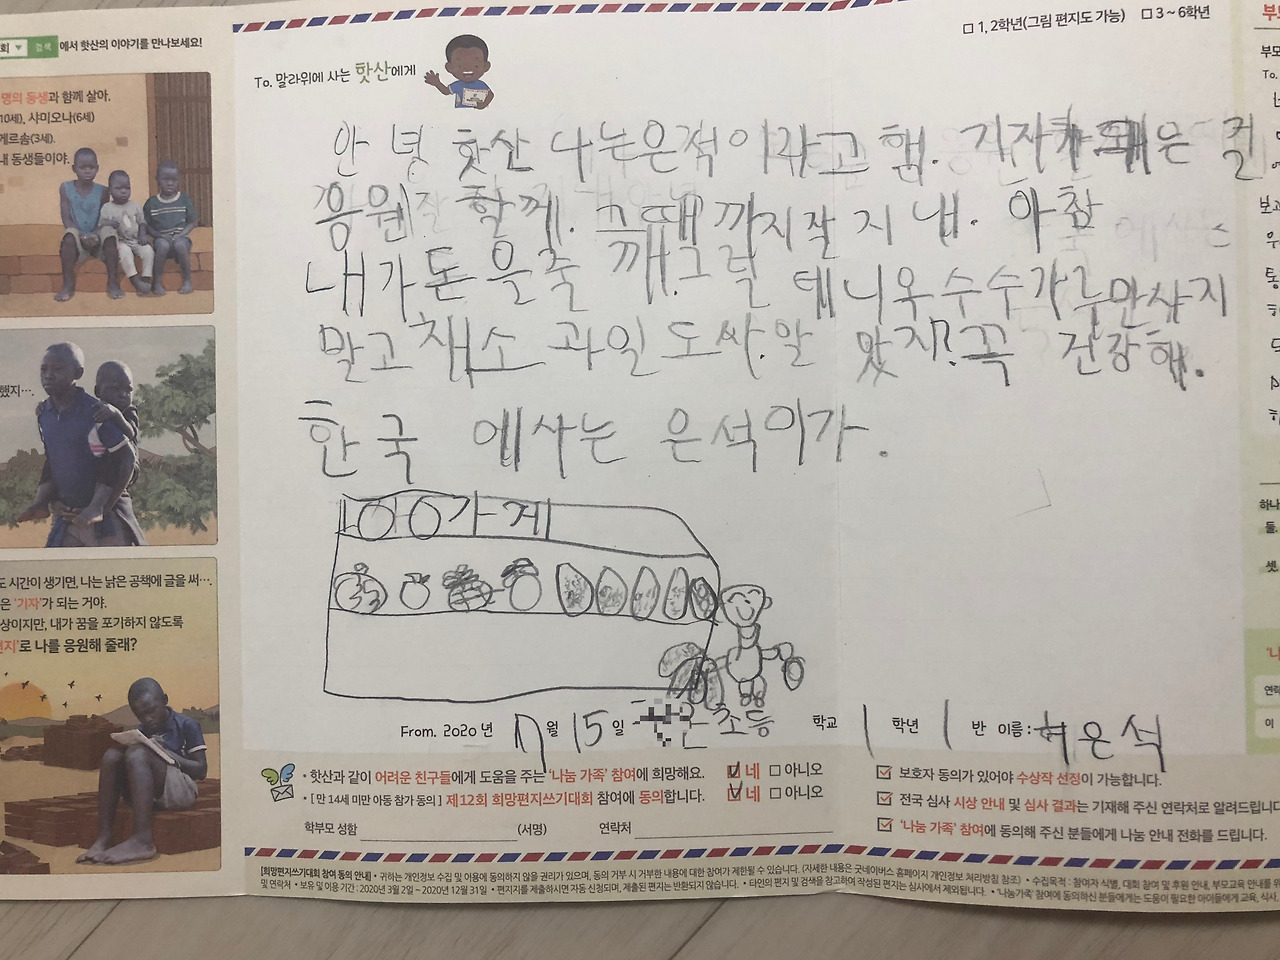 회 ▼ 검색 에서 핫산의 이야기를 만나보세요!
명의 동생과 함께 살아.
10세), 샤미오나(6세)
게르솜(3세).
내 동생들이야.
했지….
도 시간이 생기면, 나는 낡은 공책에 글을 써….
은 '기자'가 되는 거야.
상이지만, 내가 꿈을 포기하지 않도록
편지'로 나를 응원해 줄래?
□ 1, 2학년(그림 편지도 가능) □ 3 ~ 6학년
To. 말라위에 사는 핫산에게
안녕 핫산 나는은석이라고 해. 은
응원잘 할께. 그때 까지잘 지내. 아참
내가돈을줄 깨.그럴 테니옥수수가루만사지
말고 채소 과일도싸.알 았지?꼭 건강해.
한국 에사는 은석이가.
가게
From. 2020 년 7 월 15 일 초등 학교 1 학년 1 반 이름 : 허은석
• 핫산과 같이 어려운 친구들에게 도움을 주는 '나눔 가족' 참여에 희망해요. ☑ 네 □ 아니오
• [ 만 14세 미만 아동 참가 동의 ] 제12회 희망편지쓰기대회 참여에 동의합니다. ☑ 네 □ 아니오
학부모 성함 (서명) 연락처
☑ 보호자 동의가 있어야 수상작 선정이 가능합니다.
☑ 전국 심사 시상 안내 및 심사 결과는 기재해 주신 연락처로 알려드립니다
☑ '나눔 가족' 참여에 동의해 주신 분들에게 나눔 안내 전화를 드립니다.
[희망편지쓰기대회 참여 동의 안내] • 귀하는 개인정보 수집 및 이용에 동의하지 않을 권리가 있으며, 동의 거부 시 거부한 내용에 대한 참여가 제한될 수 있습니다. (자세한 내용은 굿네이버스 홈페이지 개인정보 처리방침 참조) • 수집목적 : 참여자 식별, 대회 참여 및 후원 안내, 부모교육 안내를 위
및 연락처 • 보유 및 이용 기간 : 2020년 3월 2일 ~ 2020년 12월 31일 • 편지지를 제출하시면 자동 신청되며, 제출된 편지는 반환되지 않습니다. • 타인의 편지 및 검색을 참고하여 작성된 편지는 심사에서 제외됩니다. • '나눔가족' 참여에 동의하신 분들에게는 도움이 필요한 아이들에게 교육, 식사,
부모
To.
보고
우
통
하나
들.
셋,
'나
연락
이